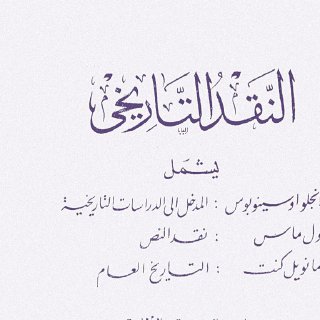 النَّقْدُ التَّارِيخي
يشمَل
لانجلوا وسينوبوس : المدخل إلى الدراسات التاريخية
بول ماس : نقد النص
إمانويل كنت : التاريخ العام